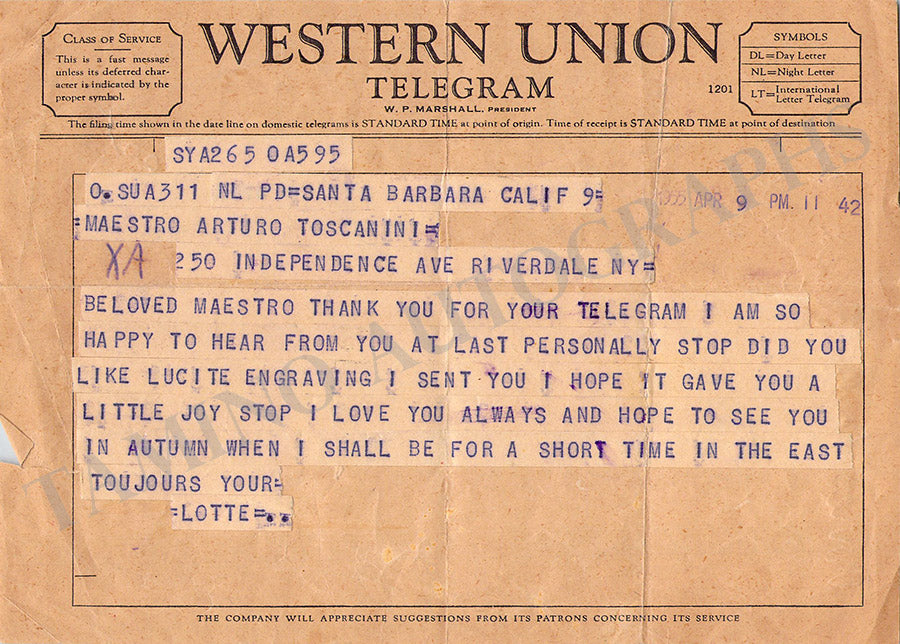 CLASS OF SERVICE
This is a fast message
unless its deferred char-
acter is indicated by the
proper symbol.
WESTERN UNION
TELEGRAM
W. P. MARSHALL, PRESIDENT
1201
SYMBOLS
DL=Day Letter
NL=Night Letter
LT=International
Letter Telegram
The filing time shown in the date line on domestic telegrams is STANDARD TIME at point of origin. Time of receipt is STANDARD TIME at point of destination
SYA265 0A595
O.SUA311 NL PD=SANTA BARBARA CALIF 9= 1955 APR 9 PM 11 42
=MAESTRO ARTURO TOSCANINI=
XA 250 INDEPENDENCE AVE RIVERDALE NY=
BELOVED MAESTRO THANK YOU FOR YOUR TELEGRAM I AM SO
HAPPY TO HEAR FROM YOU AT LAST PERSONALLY STOP DID YOU
LIKE LUCITE ENGRAVING I SENT YOU I HOPE IT GAVE YOU A
LITTLE JOY STOP I LOVE YOU ALWAYS AND HOPE TO SEE YOU
IN AUTUMN WHEN I SHALL BE FOR A SHORT TIME IN THE EAST
TOUJOURS YOUR=
=LOTTE=..
THE COMPANY WILL APPRECIATE SUGGESTIONS FROM ITS PATRONS CONCERNING ITS SERVICE
TAMINO AUTOGRAPHS